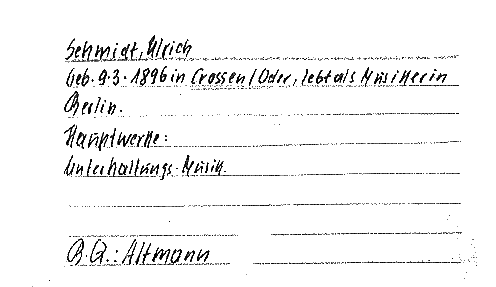 Schmidt, Ulrich
Geb. 9.3.1896 in Crossen/Oder, lebt als Musiker in
Berlin.
Hauptwerke:
Unterhaltungs-Musik.
B.Q.: Altmann